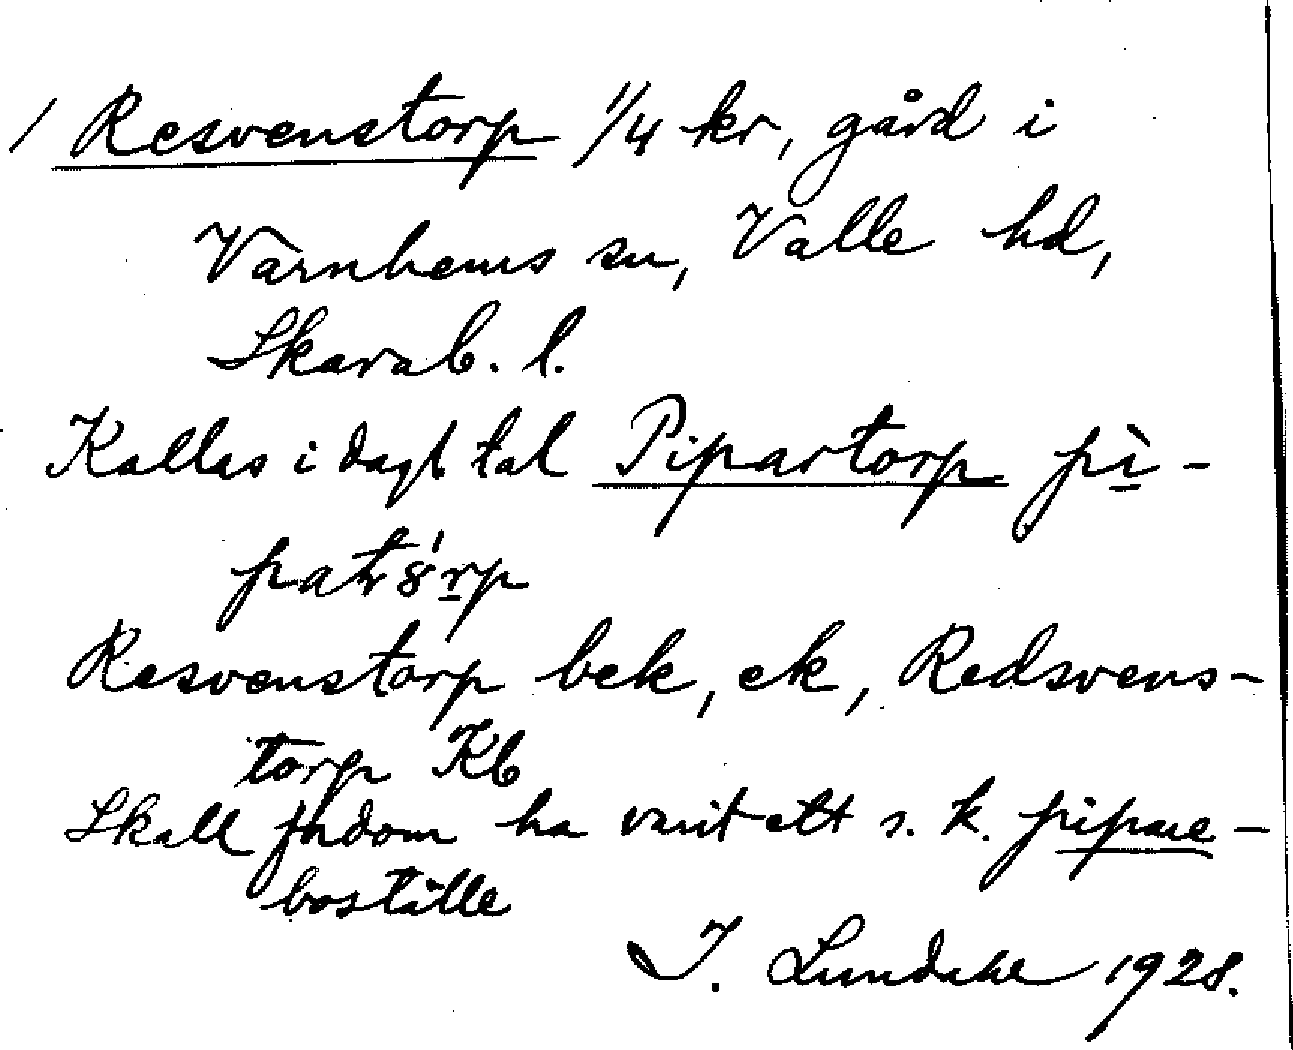 / Resvenstorp 1/4 kr, gård i
Varnhems sn, Valle hd,
Skarab. l.
Kallas i dagl tal Pipartorp pì-
patórp
Resvenstorp bek, ek, Redsvens-
torp Kb
Skall fordom ha varit ett s. k. pipare-
boställe
I. Lundahl 1928.